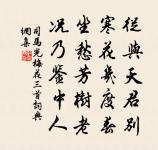 從與天君別
寒花幾度春
坐愁芳樹老
況乃鑒中人
司馬光梅花三首詞典
網集